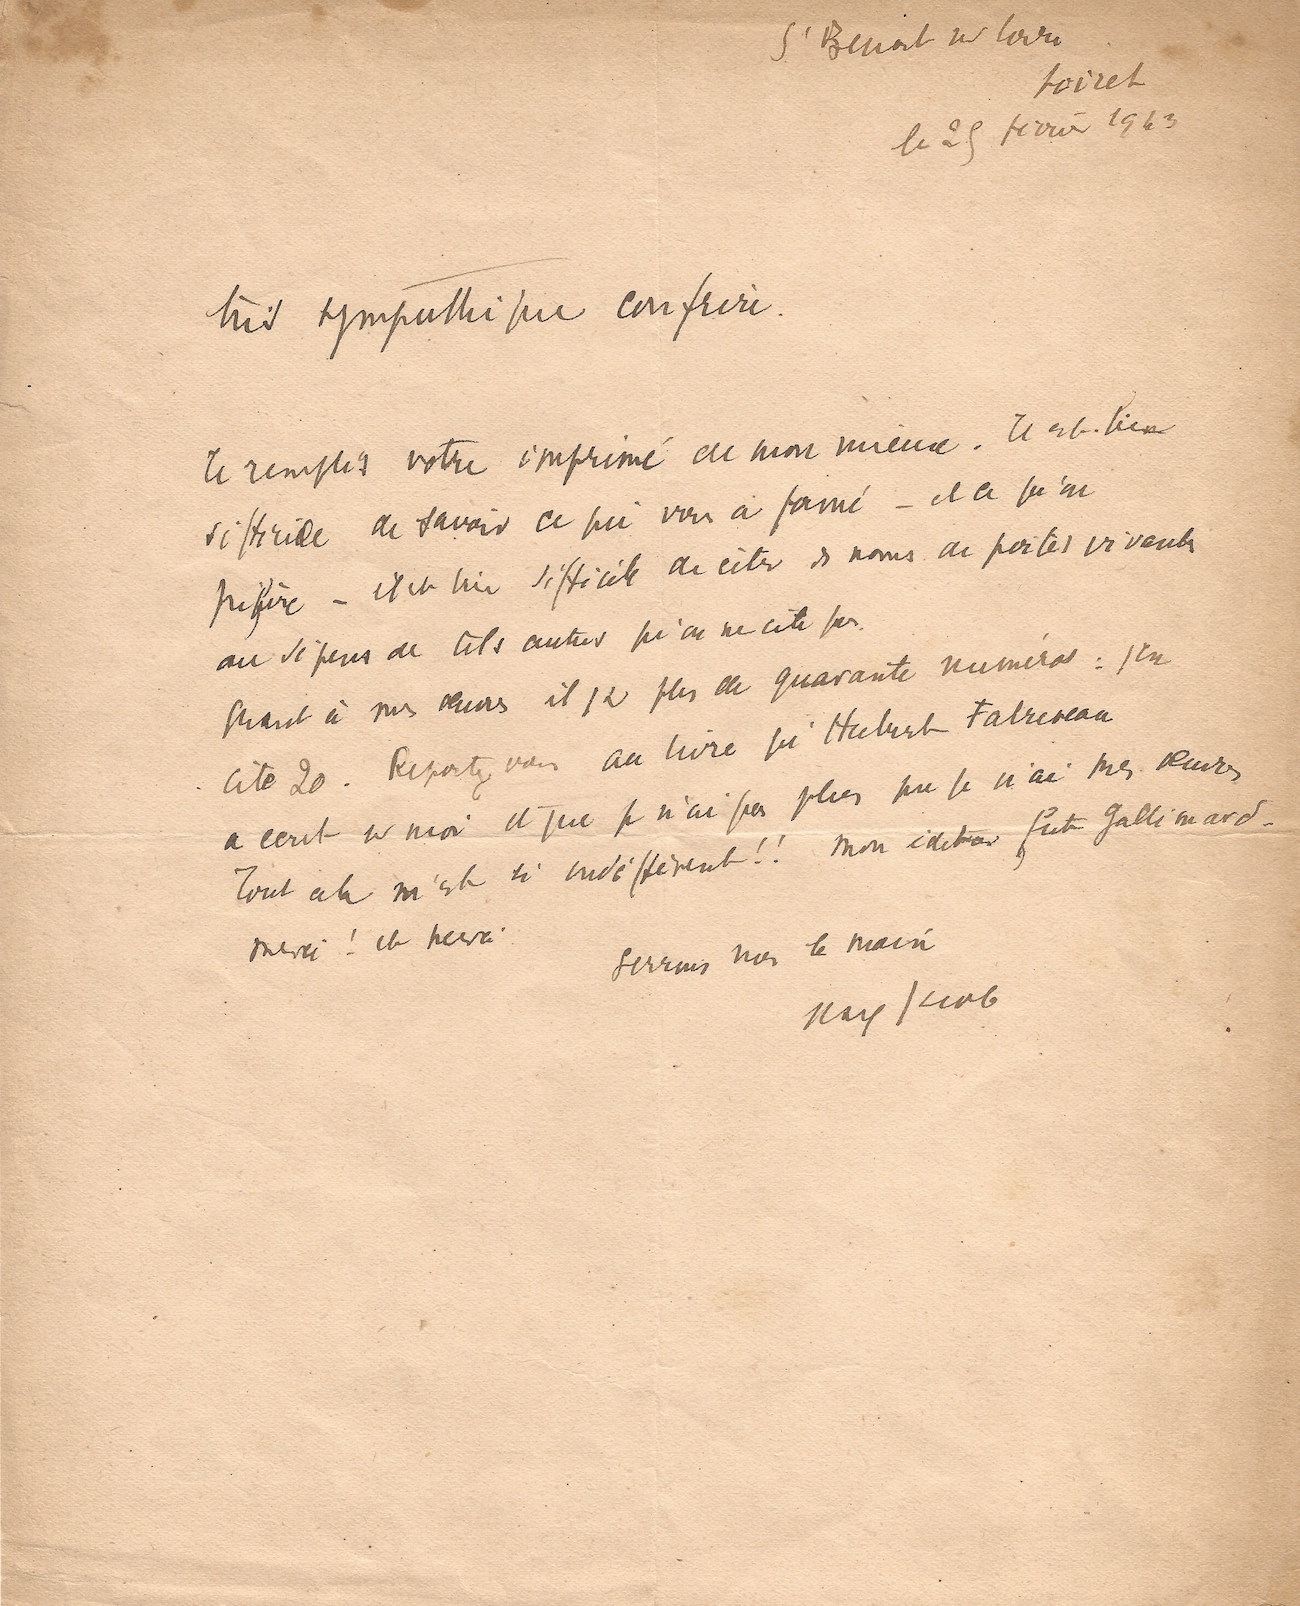 St Benoit sur Loire
Loiret
le 25 février 1943
Très sympathique confrère.
Je remplis votre imprimé de mon mieux. Il est bien
difficile de savoir ce qui vous a formé - et ce qu'on
préfère - et très difficile de citer des noms de poètes vivants
au dépens de tels autres qu'on ne cite pas.
Quant à mes œuvres il y a plus de quarante numéros : j'en
cite 20. Reportez vous au livre qu'Hubert Fabureau
a écrit sur moi et que je n'ai pas plus que je n'ai mes œuvres
Tout cela m'est si indifférent !! Mon éditeur Gallimard.
Merci ! et merci
Serrons nous la main
Max Jacob